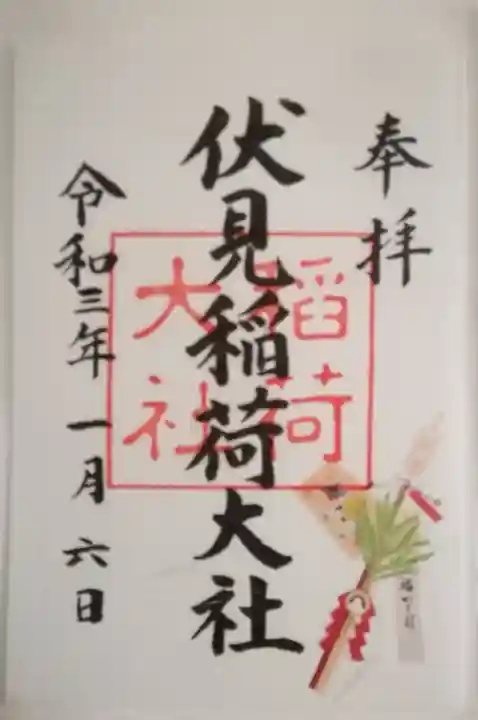 奉拝
伏見稲荷大社
稲荷
大社
令和三年一月六日